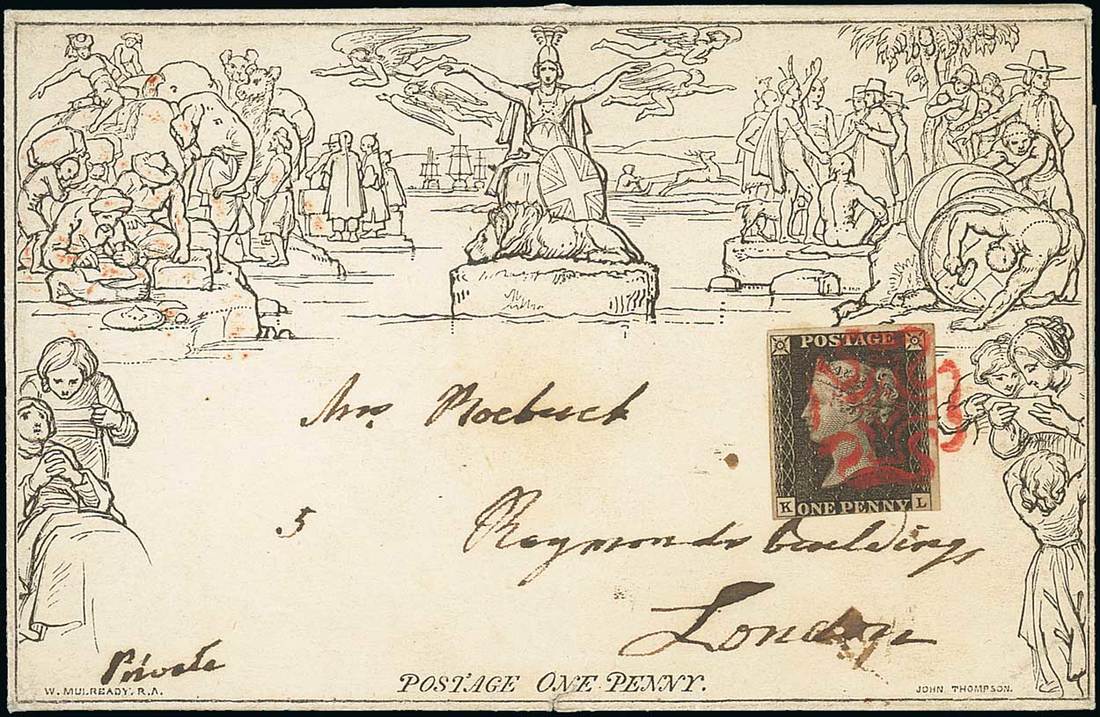 POSTAGE
K ONE PENNY L
Mrs. Roebuck
5 Raymonds buildings
London
Private
W. MULREADY. R.A.
POSTAGE ONE PENNY.
JOHN THOMPSON.